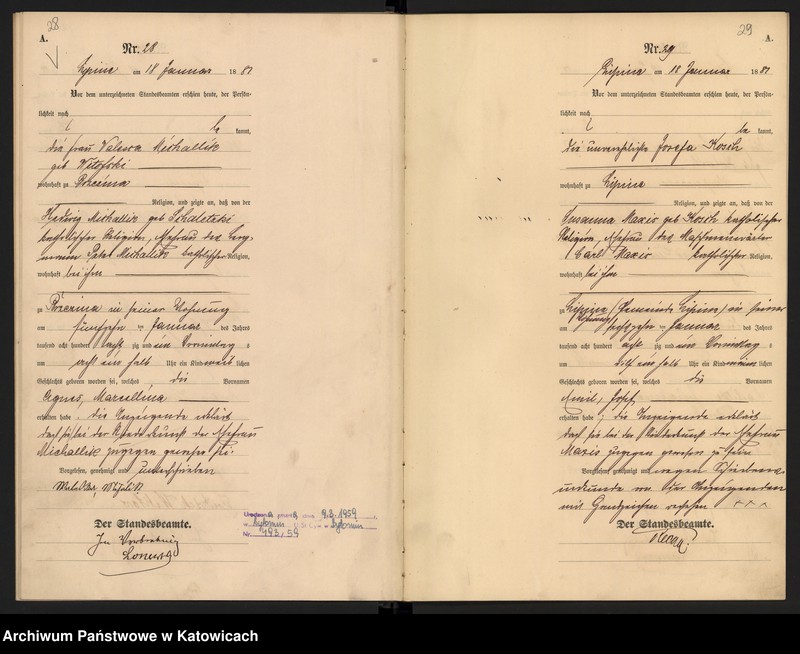 28
A.
Nr. 28
Lipine am 18 Januar 1881
Vor dem unterzeichneten Standesbeamten erschien heute, der Persön-
lichkeit nach
be kannt,
die Frau Valeska Michallik
geb
wohnhaft zu
Religion, und zeigte an, daß von der
Hedwig Michallik geb
katholischer Religion, Ehefrau des Berg-
mann Michallik katholischer Religion,
wohnhaft bei ihm
zu in seiner Wohnung
am fünfzehn ten Januar des Jahres
tausend acht hundert acht zig und ein Vormittag s
um acht ein halb Uhr ein Kind weib lichen
Geschlechts geboren worden sei, welches die Vornamen
Agnes, Marcellina
erhalten habe. Die Anzeigende erklärt
daß sie bei der Niederkunft der Ehefrau
Michallik zugegen gewesen sei.
Vorgelesen, genehmigt und unterschrieben
Der Standesbeamte.
In Vertretung
9.3.1959
Nr.
29
A.
Nr. 29
Lipine am 18 Januar 1881
Vor dem unterzeichneten Standesbeamten erschien heute, der Persön-
lichkeit nach
be kannt,
die unverehelichte Josefa Kosch
wohnhaft zu Lipine
Religion, und zeigte an, daß von der
Susanna Maxis geb Kosch katholischer
Religion, Ehefrau des
Carl Maxis katholischer Religion,
wohnhaft bei ihm
zu Lipine (Gemeinde Lipine) in seiner
Wohnung
am sechzehn ten Januar des Jahres
tausend acht hundert acht zig und ein Vormittag s
um ein halb Uhr ein Kind männ lichen
Geschlechts geboren worden sei, welches die Vornamen
Emil, Josef
erhalten habe; die Anzeigende erklärt
daß sie bei der Niederkunft der Ehefrau
Maxis zugegen gewesen zu sein
Vorgelesen, genehmigt und wegen Schreibens-
unkunde von der Anzeigenden
mit Handzeichen versehen + + +
Der Standesbeamte.
Archiwum Państwowe w Katowicach